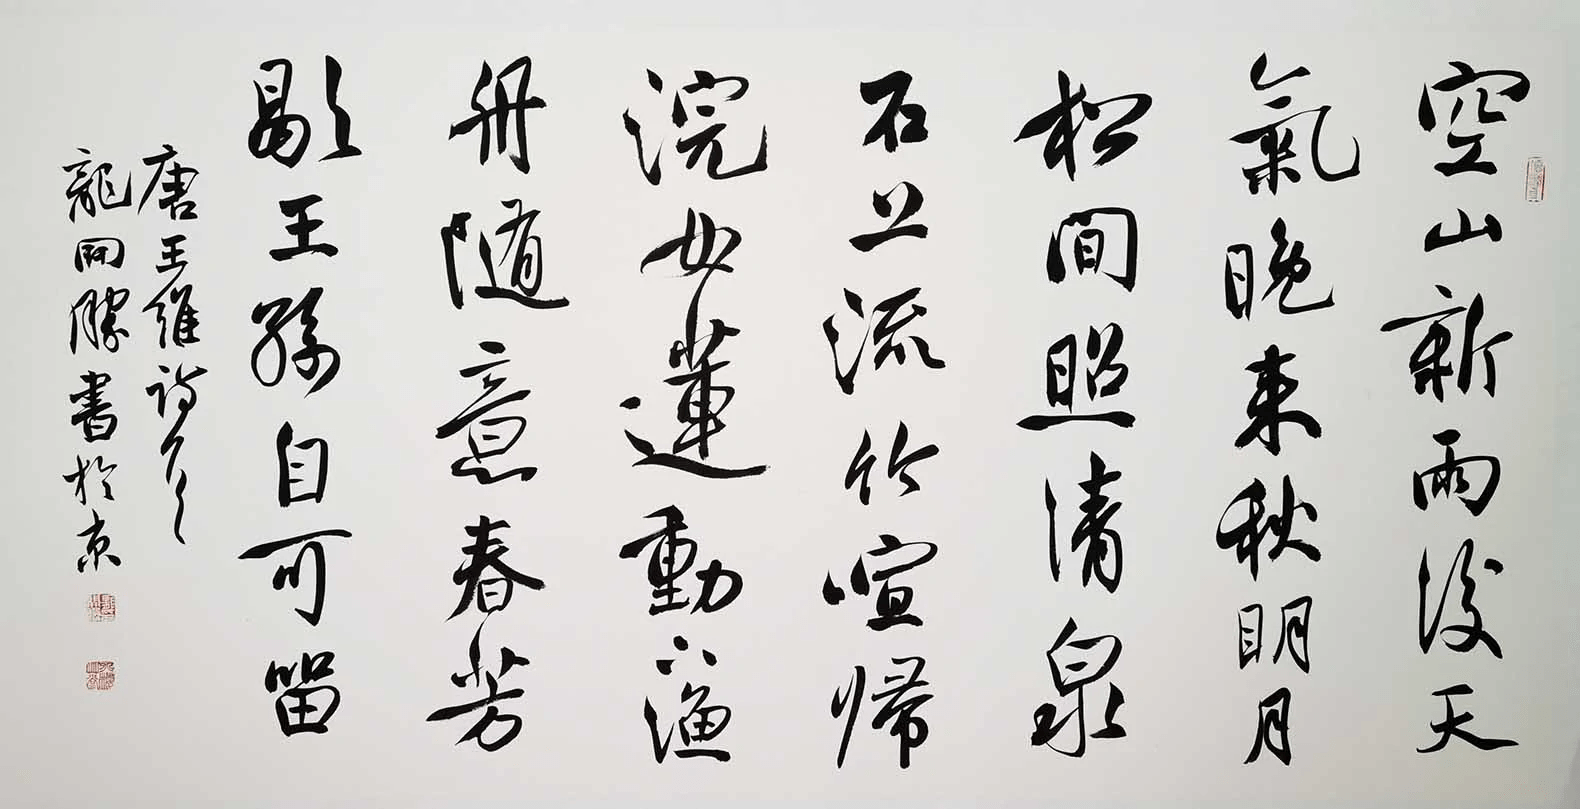 空山新雨後天
氣晚来秋明月
松間照清泉
石上流竹喧帰
浣女蓮動下漁
舟随意春芳
歇王孫自可留
唐王維詩
龍開勝書於京